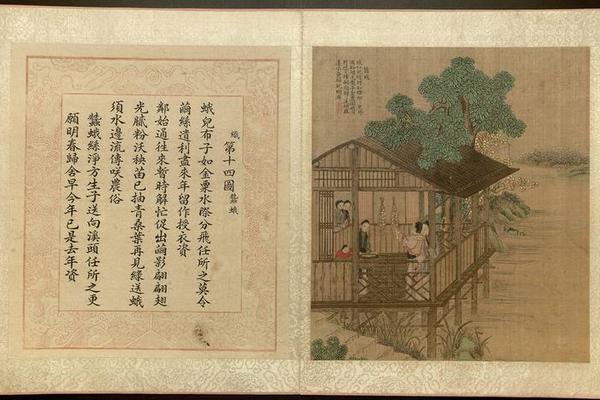 織第十四圖蠶蛾
蛾兒布子如金粟水際分飛任所之莫令
繭絲遺利盡來年留作授衣資
鄰始過往來暫時解忙促出繭影翩翩翅
光膩粉沃秧苗已抽青桑葉再見綠送蛾
須水邊流傳咲農俗
蠶蛾絲淨方生子送向溪頭任所之更
願明春歸舍早今年已是去年資
蠶蛾